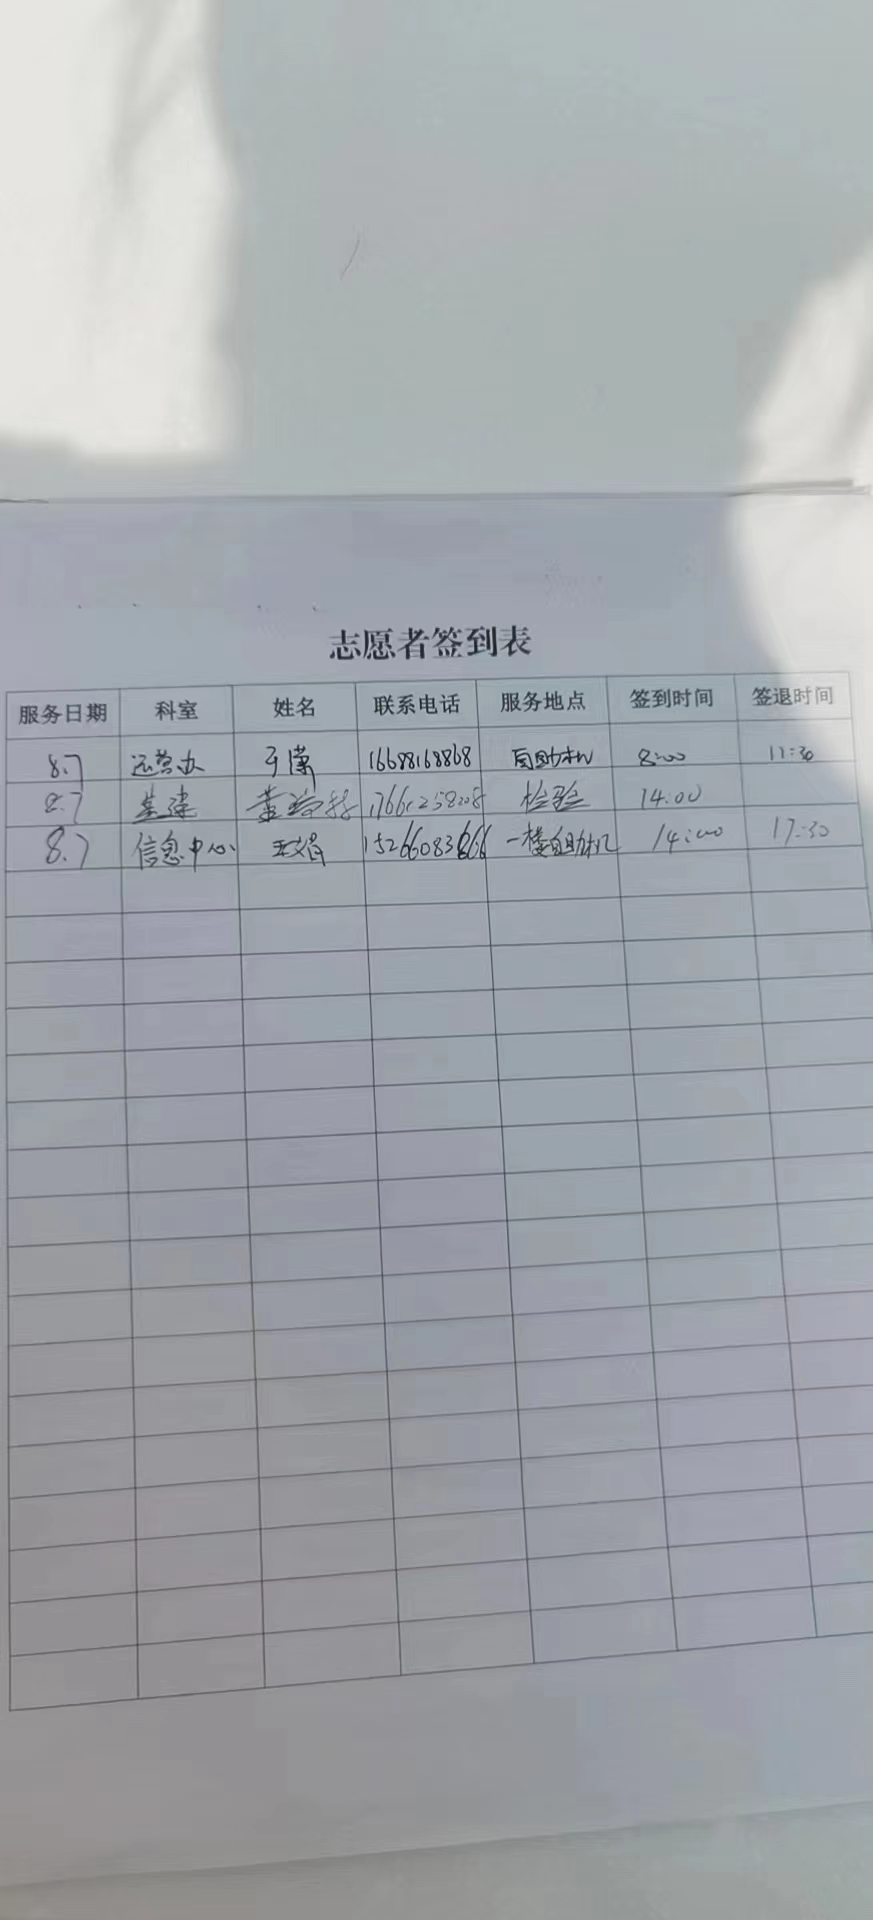 志愿者签到表
服务日期 科室 姓名 联系电话 服务地点 签到时间 签退时间
8.7 运营办 于潇 16688168868 自助机 8:00 11:30
8.7 基建 董 检验 14:00
8.7 信息中心 15266083666 一楼自助机 14:00 17:30